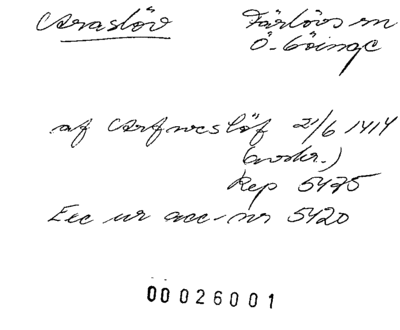 Araslöv
Färlövs sn
Ö. Göinge
af Arfweslöf 21/6 1414
(avskr.)
Rep 5475
Exc ur acc-nr 5420
00026001